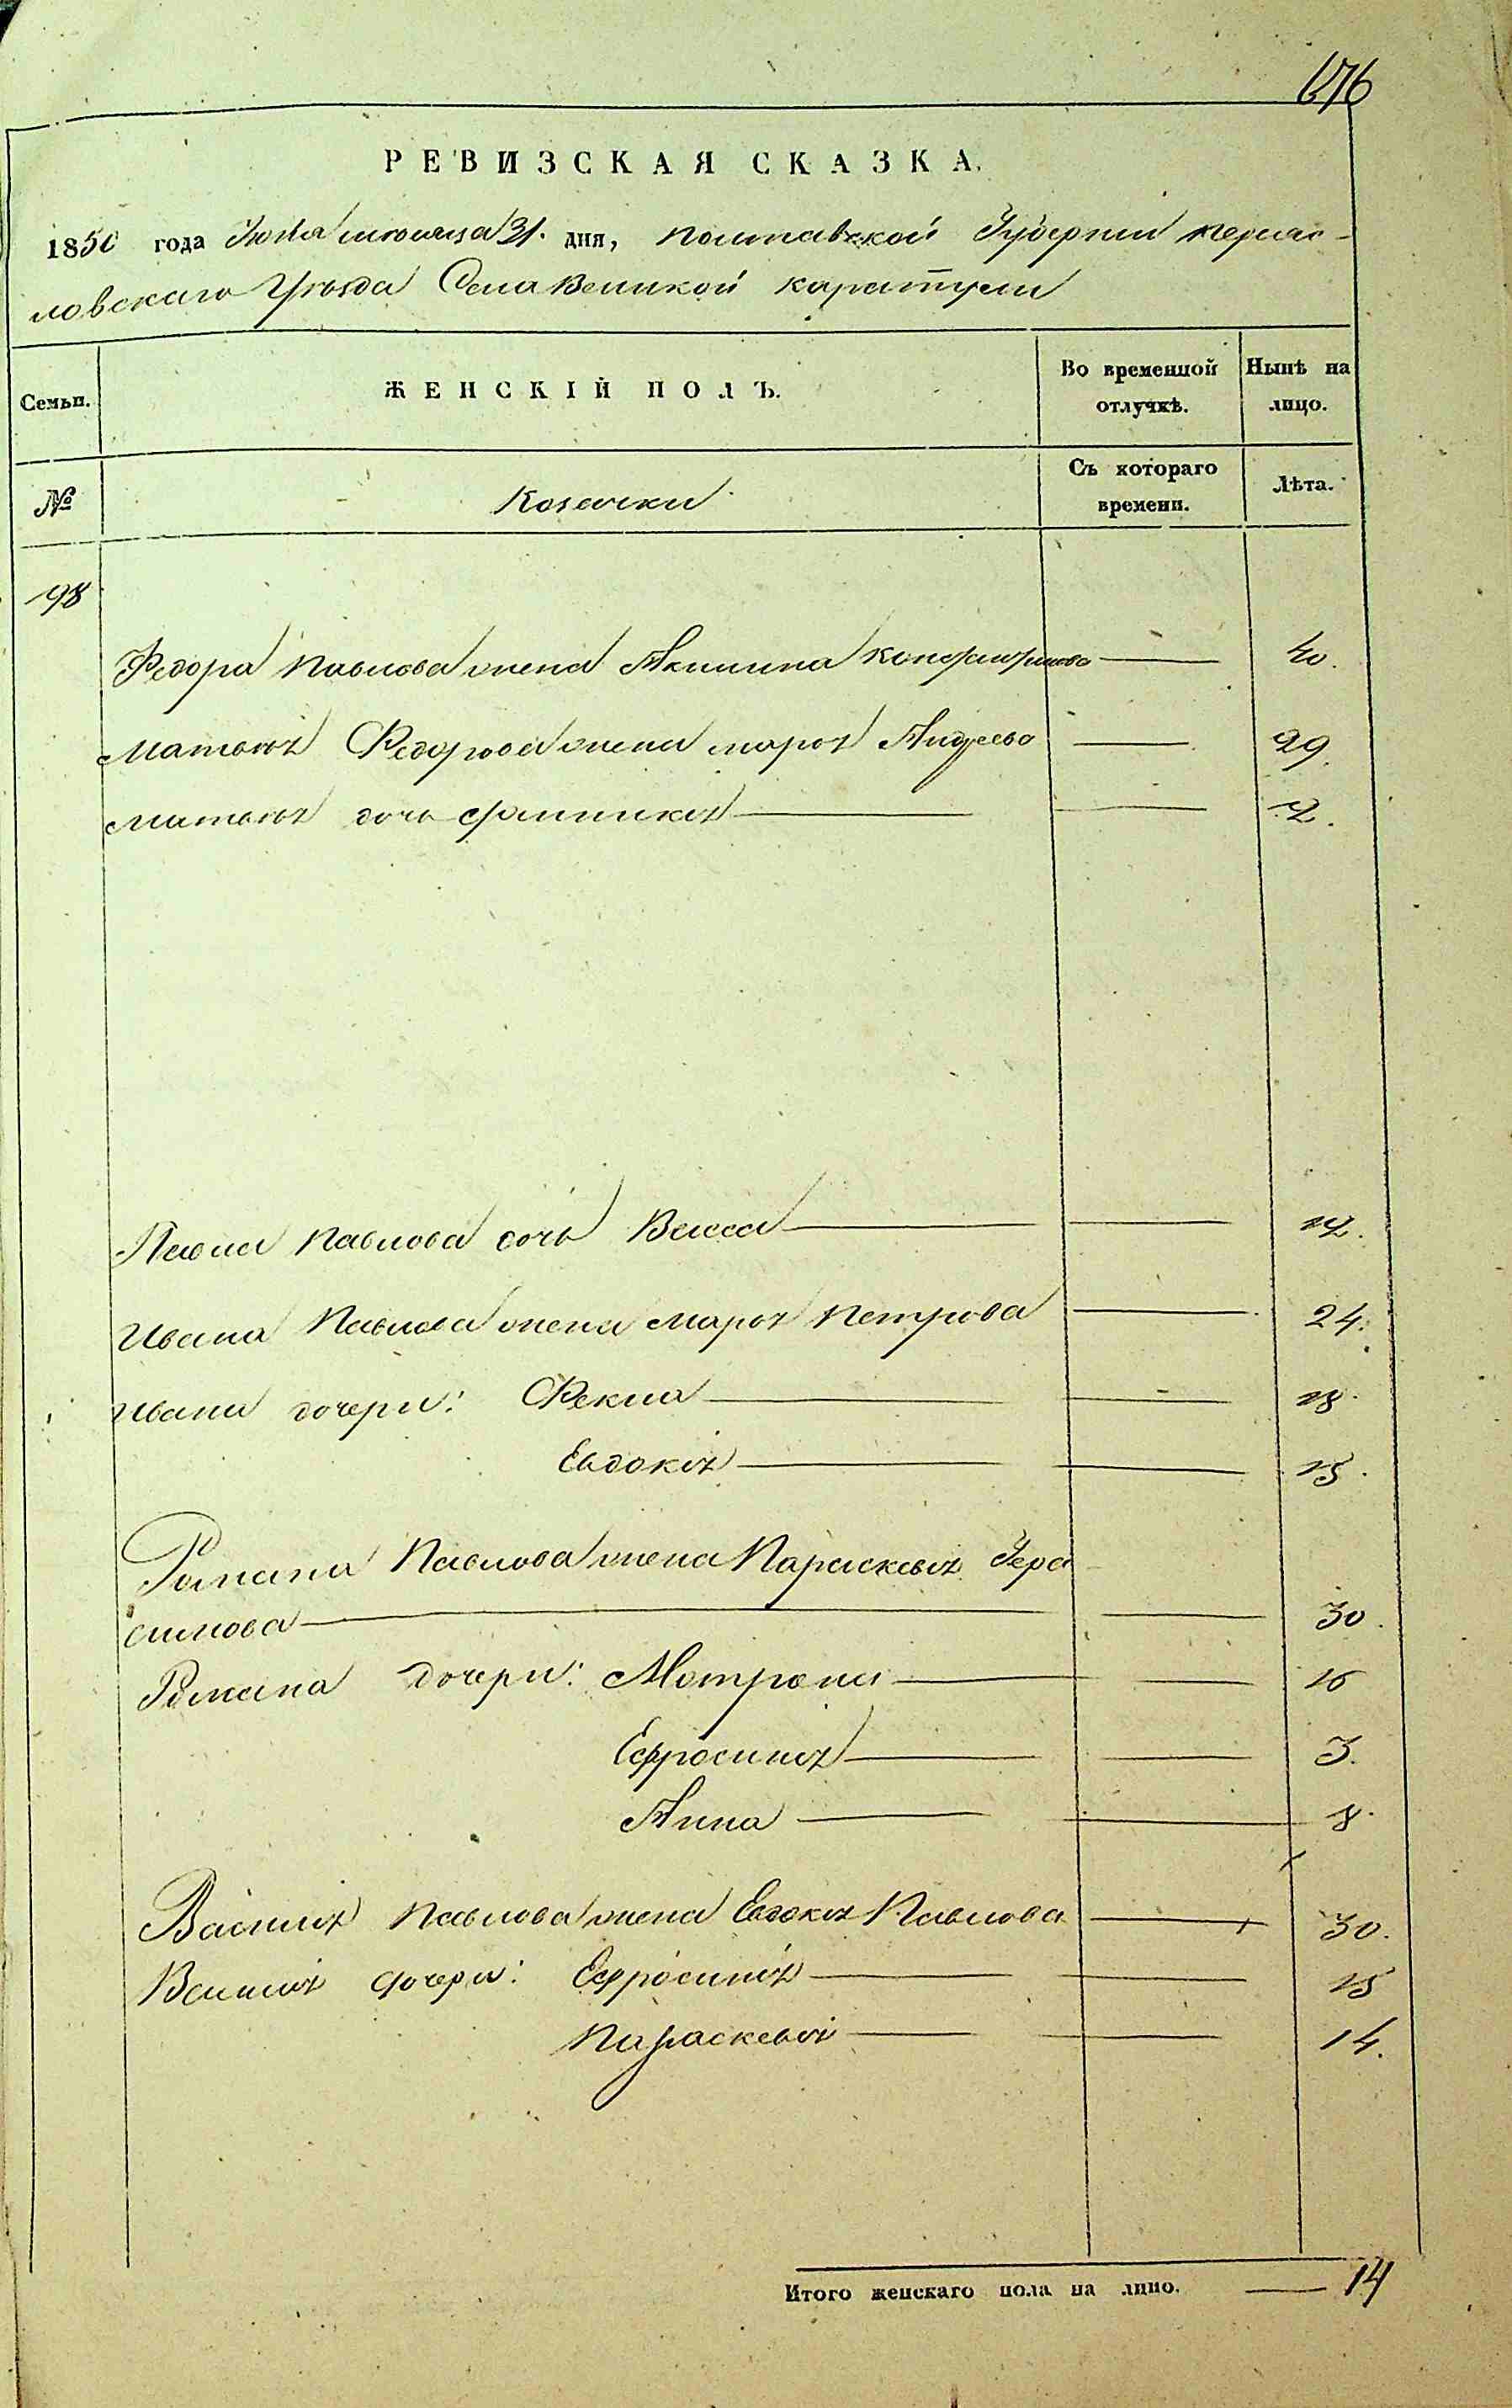 676
РЕВИЗСКАЯ СКАЗКА.
1850 года Июля месяца 31. дня, Полтавской Губернии Переяс-
ловскаго Уезда Села Великой Каратули
Семьи.
ЖЕНСКІЙ ПОЛЪ.
Во временной отлучкѣ.
Нынѣ на лицо.
№
Козачки
Съ котораго времени.
Лѣта.
98
Федора Павлова жена Акилина — 40.
Матвея Федорова жена Марья Андреева — 29.
Матвея дочь — 2.
Павла Павлова дочь Васса — 12.
Ивана Павлова жена Марья Петрова — 24.
Ивана дочери: Фекла — 18.
Евдокія — 15.
Романа Павлова жена Параскевія Гера
симова — 30.
Романа дочери: Мотрона — 16
Ефросинія — 3.
Анна — 8.
Василія Павлова жена Евдокія Павлова — 30.
Василія дочери: Ефросинія — 15
Параскевія — 14.
Итого женскаго пола на лицо. — 14